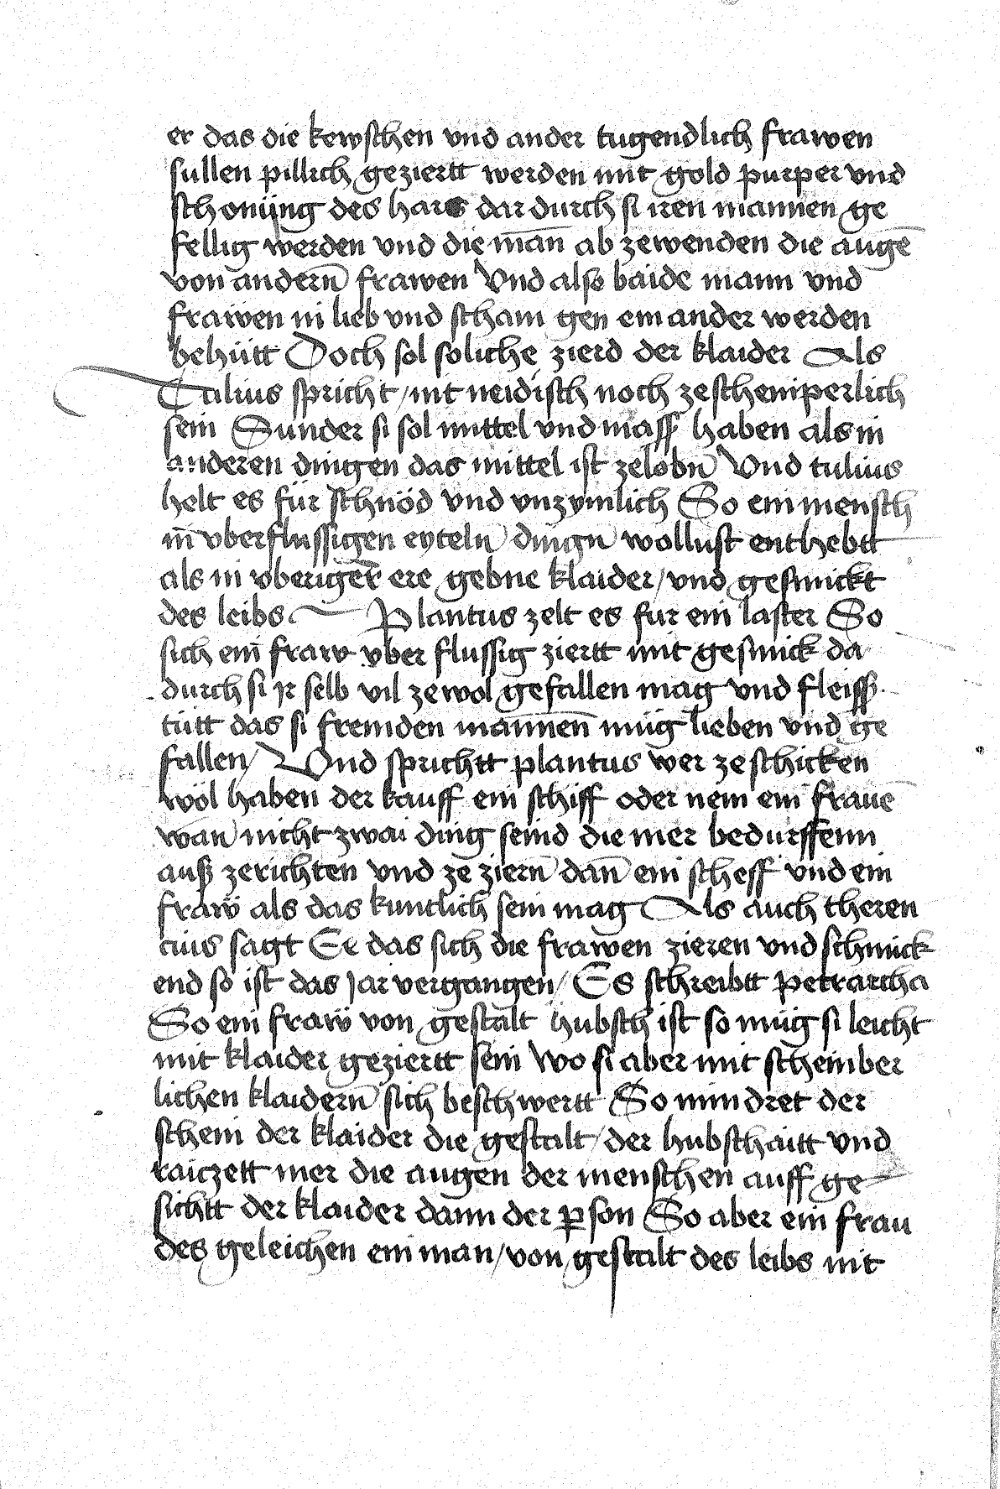 er das die kewschen vnd ander tugendlich frawen
sullen pillich geziertt werden mit gold purper vnd
schonüng des hars dar durch si iren mannen ge
fellig werden vnd die man̄ ab zewenden die augē
von andern̄ frawen Vnd also baide mann vnd
frawen in lieb vnd scham gen ein ander werden
behütt Doch sol soliche zierd der klaider Als
Tulius spricht / nit neidisch noch zescheinperlich
sein Sunder si sol mittel vnd mass haben als in
anderen dingen das mittel ist zelobn̄ Vnd tulius
helt es für schnöd vnd vnzymlich So ein mensch
in̄ vberflussigen eyteln̄ dingn̄ wollust enthebtt
als in vberiger ere gebne klaider / vnd gesmickt
des leibs Plantus zelt es fur ein laster So
sich ein̄ fraw vber flussig ziertt mit gesmick da
durch si jr selb vil zewol gefallen mag vnd fleiss
tütt das si fremden man̄nen̄ müg lieben vnd ge
fallen / Vnd sprichtt plantus wer ze schicken
wöl haben der kauff ein schiff oder nem ein frauē
wan̄ nicht zwai ding seind die mer bedurffenn
auß zerichten vnd ze ziern̄ dan̄ ein scheff vnd ein
fraẅ als das kuntlich sein mag Als auch theren
cius sagt Ee das sich die frawen zieren vnd schmick
end so ist das jar vergangen / Es schreibtt petrarcha
So ein fraẅ von gestalt hubsch ist so müg si leicht
mit klaider geziertt sein Wo si aber mit scheinber
lichen klaidern̄ sich beschwertt So mindret der
schein der klaider die gestalt / der hubschaitt vnd
raiczett mer die augen der menschen auff ge
sichtt der klaider dann der ꝑson So aber ein frau
des geleichen ein man / von gestalt des leibs nit